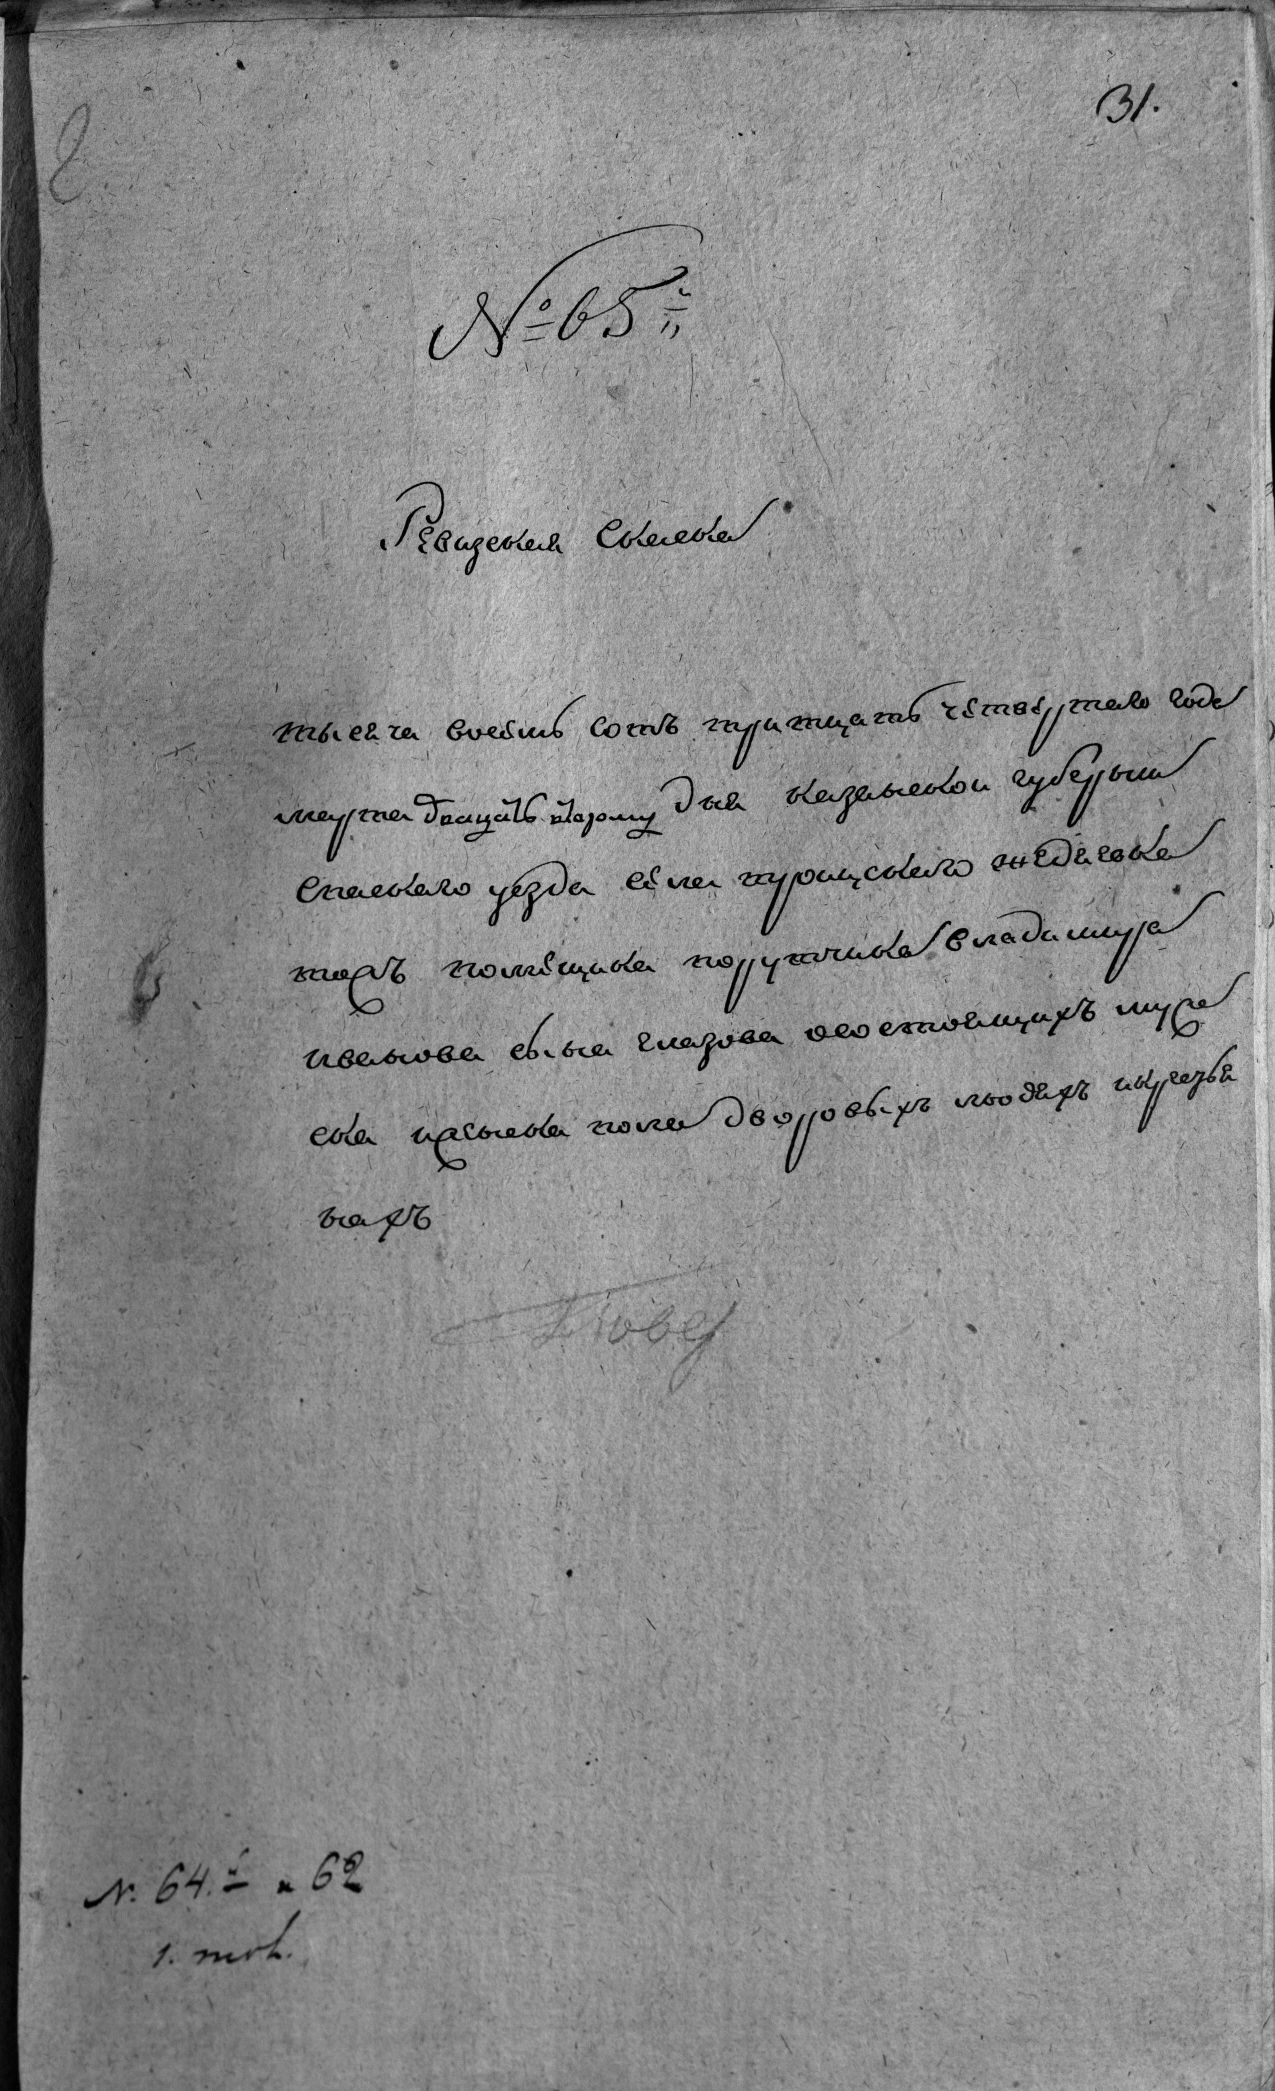 31.
№ 65й
Ревизская Скаска
тысяча восемь сотъ тритцать четвертаго года
марта двацать втарому дня казанской губерьнии
спаскаго уезда села троицскаго жедяевка
тожъ помещика порутчика владимира
иванова сына глазова осостоящихъ муже
ска иженска пола дворовыхъ людяхъ икрестья
нахъ
№. 64.й и 62